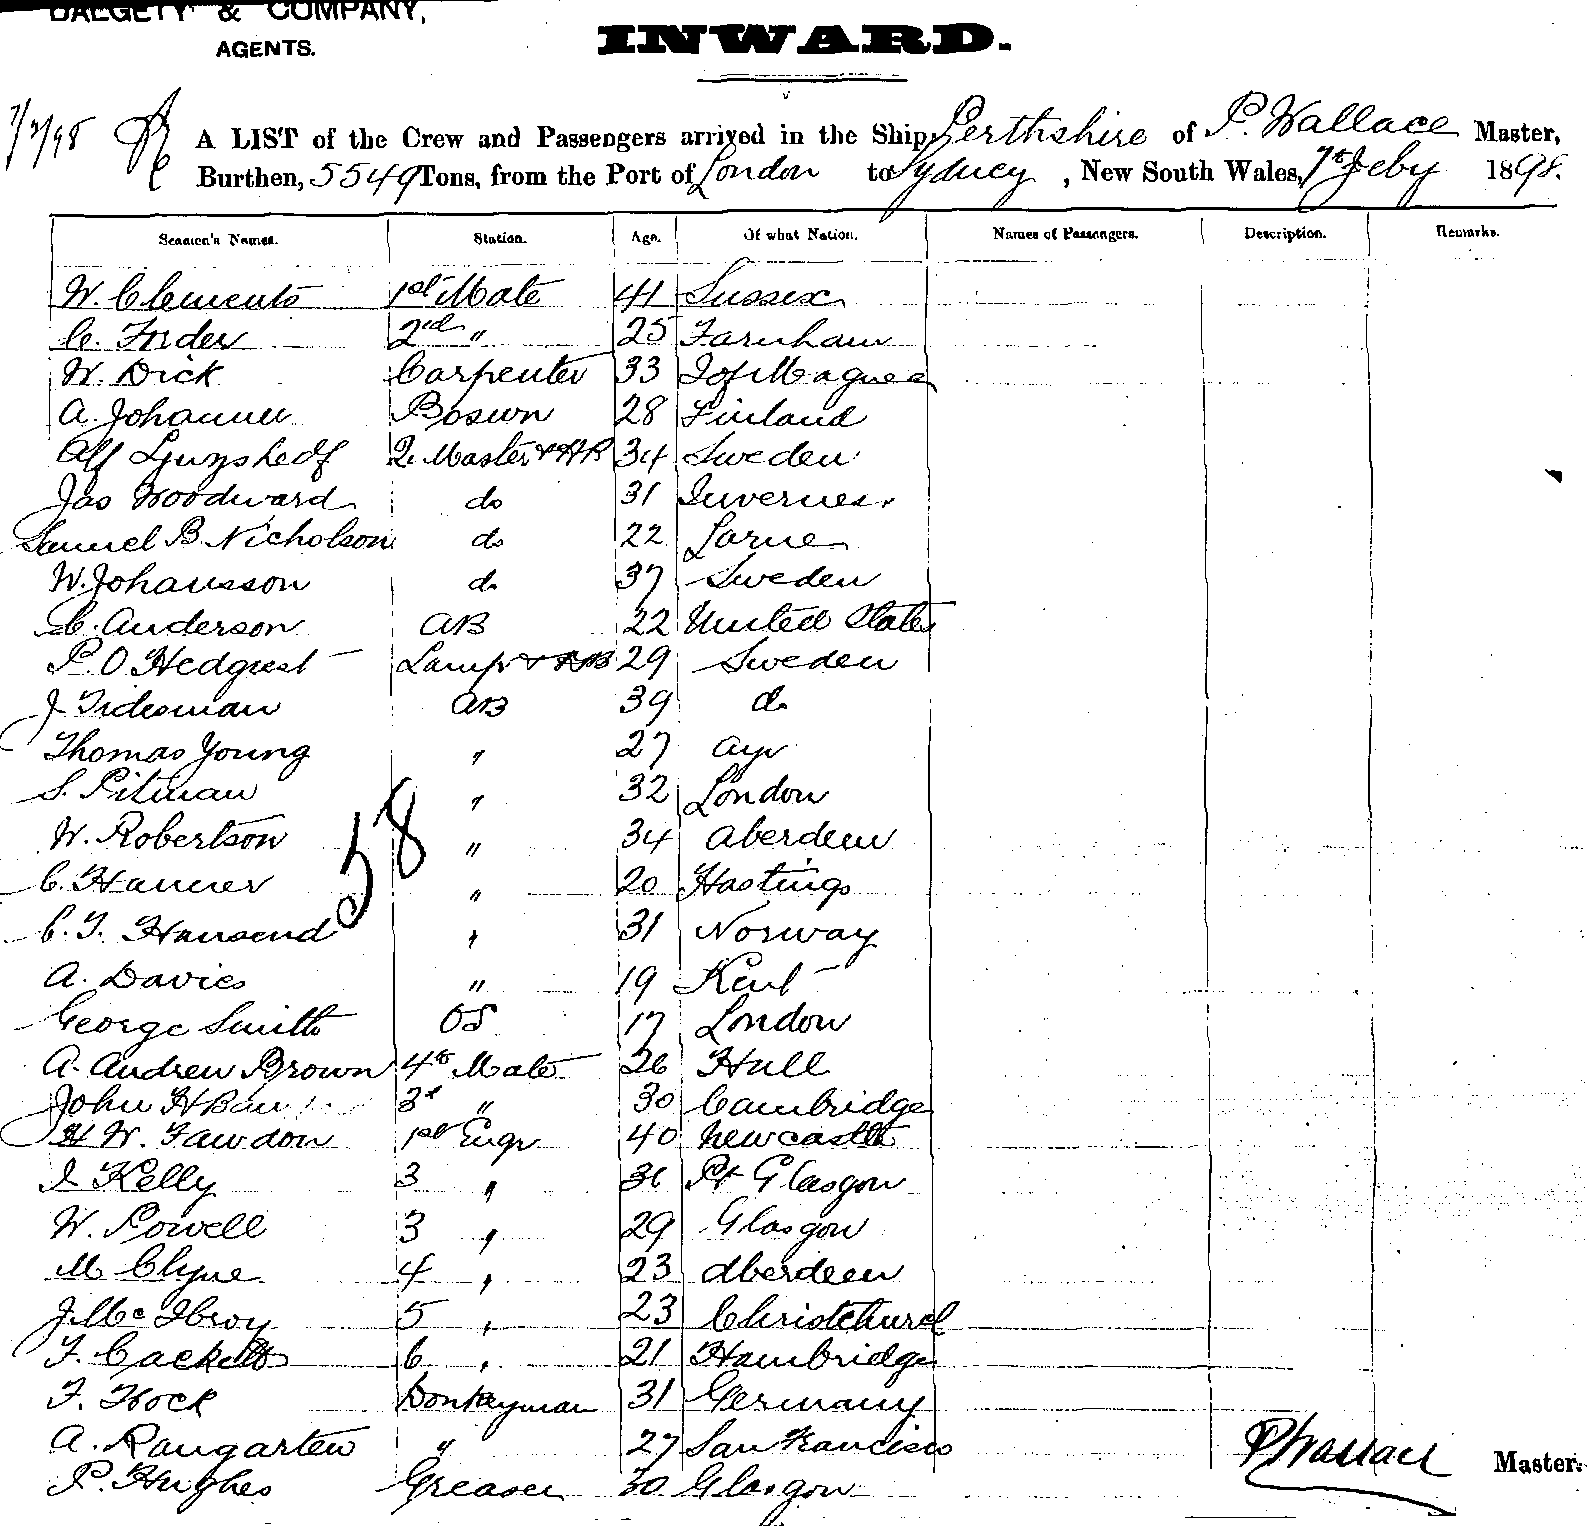 DALGETY & COMPANY,
AGENTS.
INWARD.
7/2/98
A LIST of the Crew and Passengers arrived in the Ship Perthshire of P. Wallace Master,
Burthen, 5549 Tons, from the Port of London to Sydney, New South Wales, 7th Feby 1898.
Seamen's Names. Station. Age. Of what Nation. Names of Passengers. Description. Remarks.
W. Clements 1st Mate 41 Sussex
C. Forder 2nd " 25 Farnham
W. Dick Carpenter 33 I of
A. Johannes Boswn 28 Finland
Alf 2. Master & AB 34 Sweden
Jas Woodward do 31 Inverness
Samuel B. Nicholson do 22 Larne
W. Johansson do 37 Sweden
C. Anderson AB 22 United States
P. O Hedquist Lamps & AB 29 Sweden
J Tidesman AB 39 do
Thomas Young " 27 Ayr
S. Pitman " 32 London
W. Robertson " 34 Aberdeen
C. Hanner " 20 Hastings
C. F. Hansend " 31 Norway
A. Davies " 19 Kent
George Smith OS 17 London
58
A. Andrew Brown 4th Mate 26 Hull
John H 3d " 30 Cambridge
H W. Fawdon 1st Engr 40 Newcastle
J Kelly 3 " 36 Pt Glasgow
W. Powell 3 " 29 Glasgow
M Clyne 4 " 23 Aberdeen
J. Mc Ilroy 5 " 23 Christchurch
F. Cackett 6 " 21 Hambridge
F. Hock Donkeyman 31 Germany
A. Raugarten " 27 San Francisco
P. Hughes Greaser 30 Glasgow
P Wallace Master.